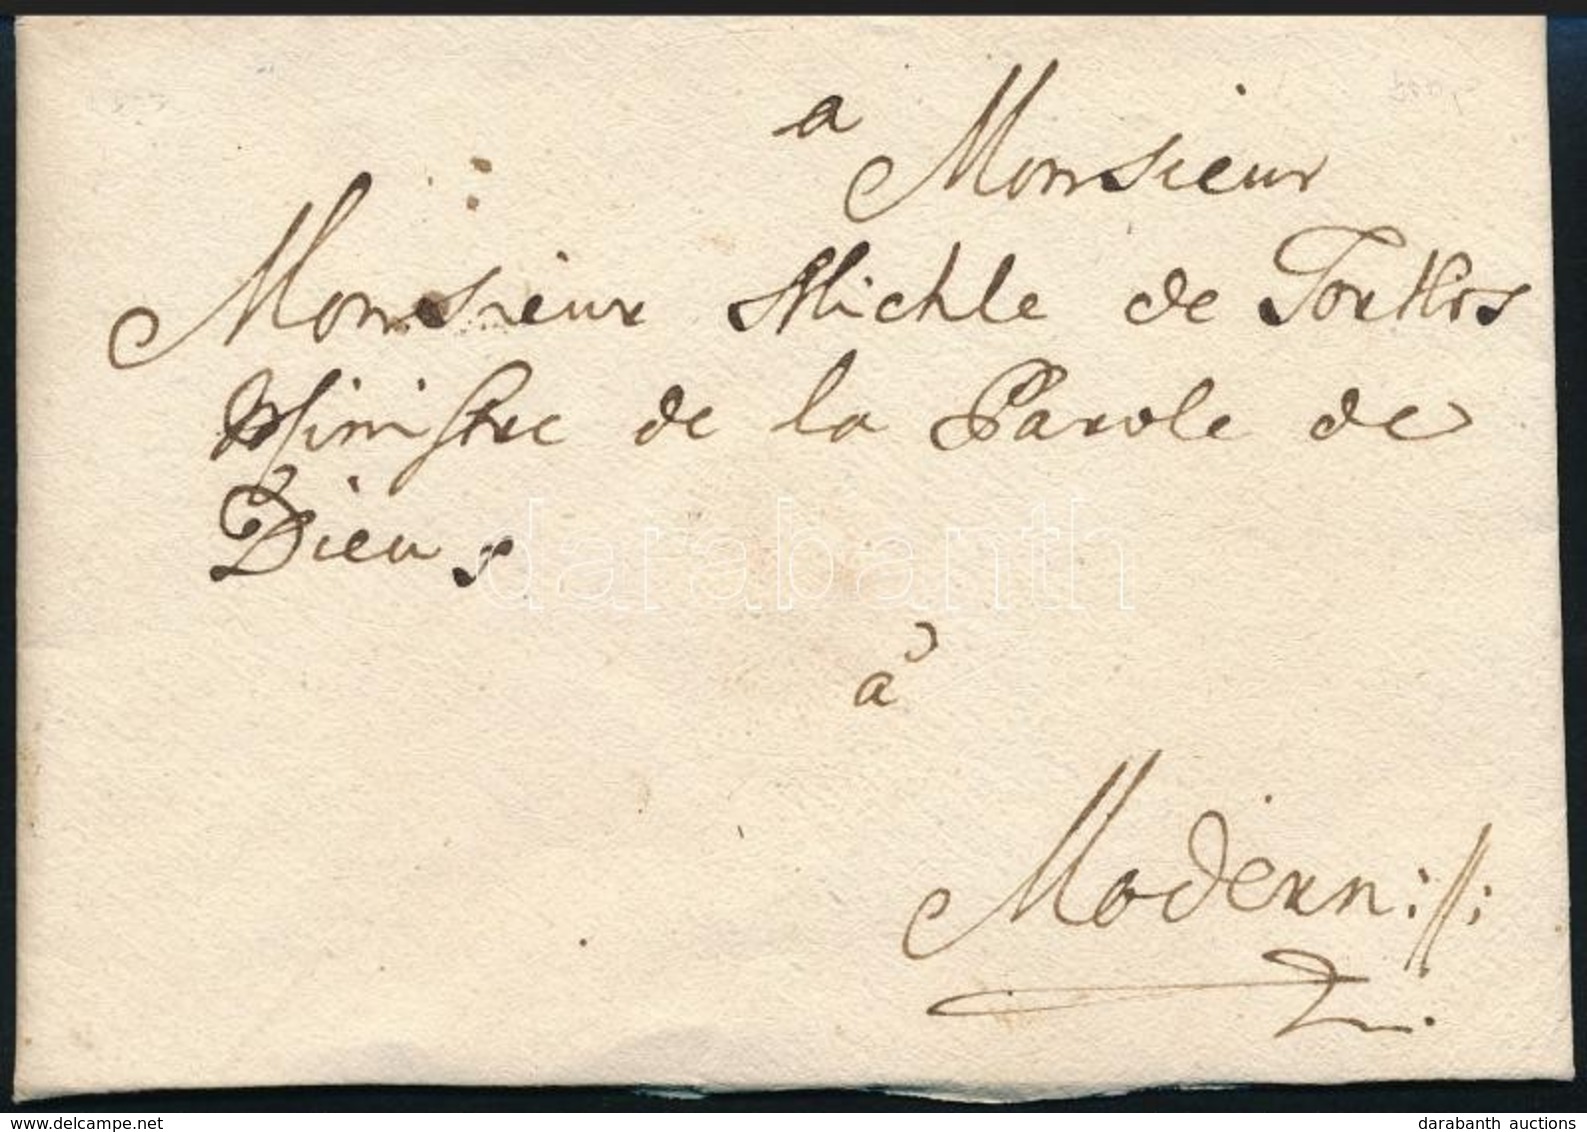 a
Monsieur
Monsieur Michle de Torkos
Ministre de la Parole de
Dieu
à
Modern
darabanth
delcampe.net
darabanth auctions